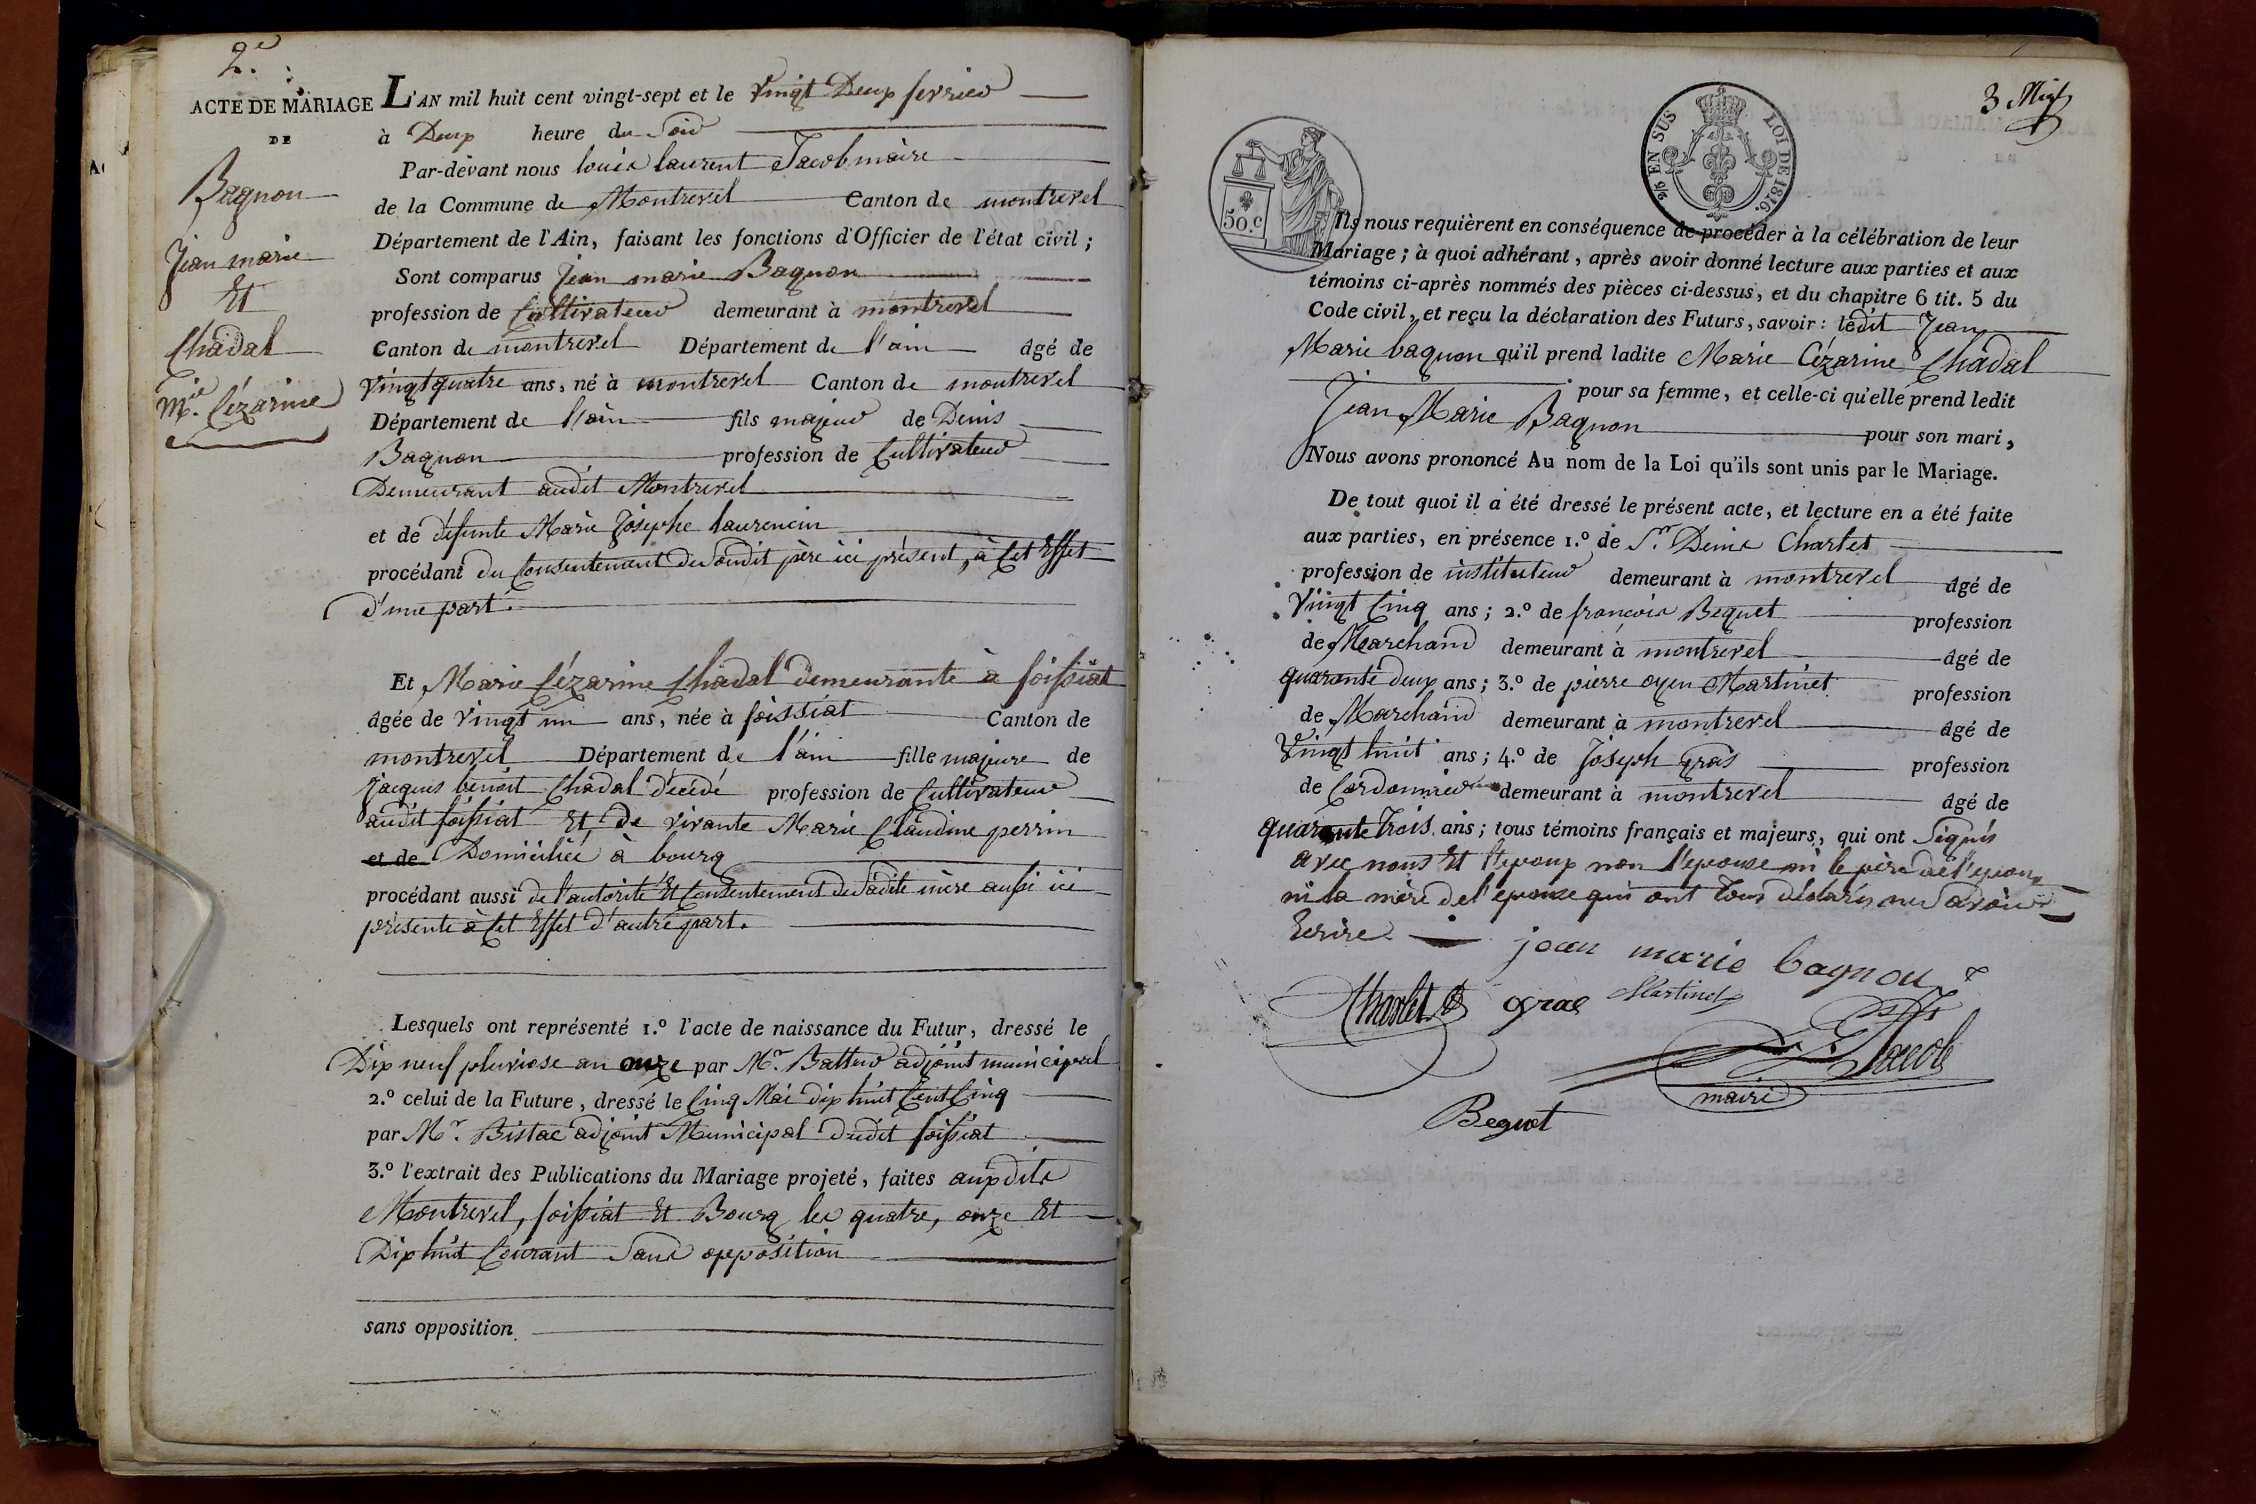 2.e
ACTE DE MARIAGE
DE
Bagnon
Jean marie
Et
Chadal
Mie. Cézarine
L'AN mil huit cent vingt-sept et le vingt Deux fevrier
à Deux heure du Soir
Par-devant nous louis laurent Jacob maire
de la Commune de Montrevel Canton de montrevel
Département de l'Ain, faisant les fonctions d'Officier de l'état civil ;
Sont comparus Jean marie Bagnon
profession de Cultivateur demeurant à montrevel
Canton de montrevel Département de l'ain âgé de
vingt quatre ans, né à montrevel Canton de montrevel
Département de l'ain fils majeur de Denis
Bagnon profession de Cultivateur
Demeurant audit Montrevel
et de défunte Marie Josephe laurencin
procédant du Consentement du Sudit père ici présent, à Cet Effet
d'une part.
Et Marie Cézarine Chadal demeurante à foissiat
âgée de vingt un ans, née à foissiat Canton de
montrevel Département de l'ain fille majeure de
Jacques benoit Chadal décédé profession de Cultivateur
audit foissiat Et de vivante Marie Claudine perrin
et de Domiciliée à bourg
procédant aussi de l'autorité Et Consentement de Sadite mère aussi ici
présente à Cet Effet d'autre part.
Lesquels ont représenté 1.º l'acte de naissance du Futur, dressé le
Dix neuf pluviose an onze par Mr. Battur adjoint municipal
2.º celui de la Future, dressé le Cinq Mai dix huit Cent Cinq
par Mr. Bistac adjoint Municipal dudit foissiat
3.º l'extrait des Publications du Mariage projeté, faites auxdits
Montrevel, foissiat Et Bourg les quatre, onze Et
Dix huit Courant Sans opposition
sans opposition
3 
50 c
2/5 EN SUS LOI DE 1816.
Ils nous requièrent en conséquence de procéder à la célébration de leur
Mariage ; à quoi adhérant, après avoir donné lecture aux parties et aux
témoins ci-après nommés des pièces ci-dessus, et du chapitre 6 tit. 5 du
Code civil, et reçu la déclaration des Futurs, savoir : ledit Jean
Marie bagnon qu'il prend ladite Marie Cézarine Chadal
pour sa femme, et celle-ci qu'elle prend ledit
Jean Marie Bagnon pour son mari,
Nous avons prononcé Au nom de la Loi qu'ils sont unis par le Mariage.
De tout quoi il a été dressé le présent acte, et lecture en a été faite
aux parties, en présence 1.º de Sr. Denis Charlet
profession de instituteur demeurant à montrevel âgé de
vingt Cinq ans ; 2.º de françois Bequet profession
de Marchand demeurant à montrevel âgé de
quarante deux ans ; 3.º de pierre oyen Martinet profession
de Marchand demeurant à montrevel âgé de
vingt huit ans ; 4.º de Joseph gras profession
de Cordonnier demeurant à montrevel âgé de
quarante Trois ans ; tous témoins français et majeurs, qui ont Signés
avec nous Et l'epoux non l'epouse ni le père de l'epoux
ni la mère de l'epouse qui ont tous déclarés ne Savoir
Ecrire.
jean marie bagnon
Charlet gras Martinet
Jacob
maire
Bequet